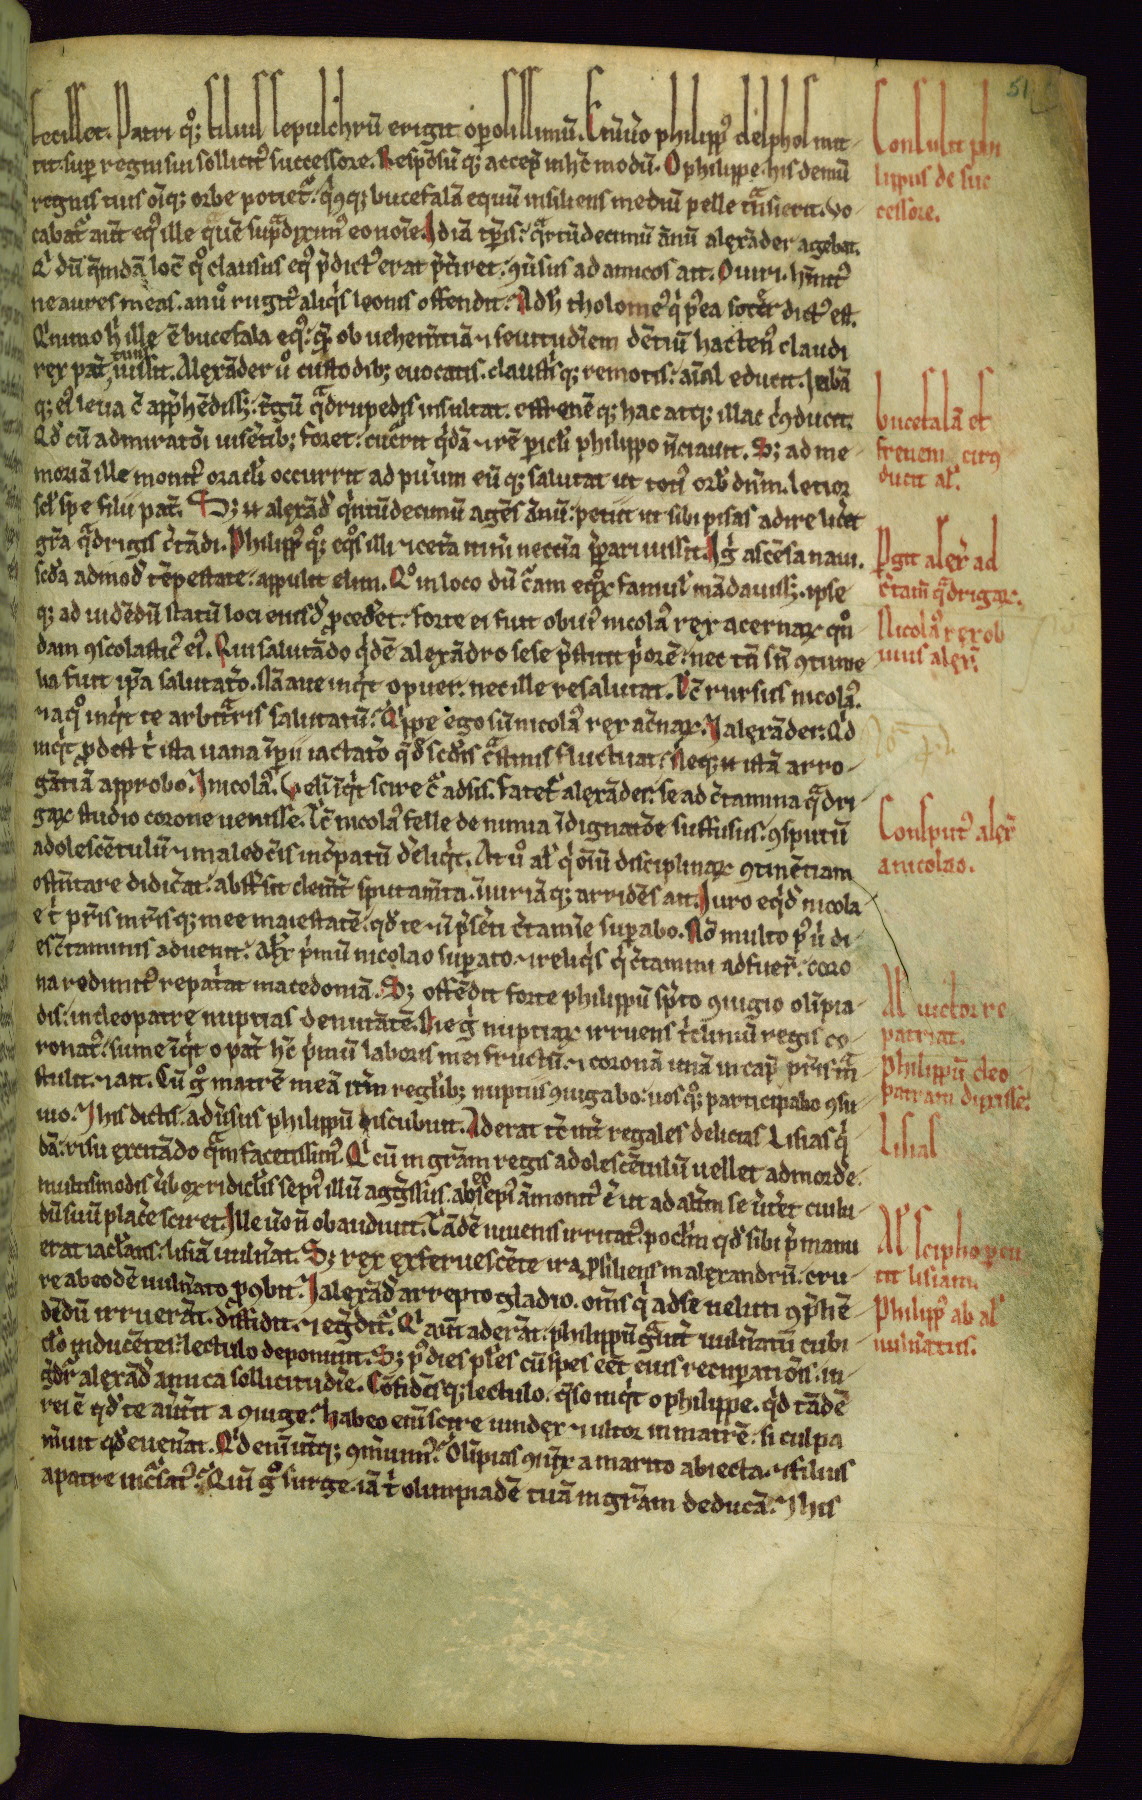 fecisset. Patri qoq; filius sepulchrū erigit opolissimū. Et uero philipp' delphos mit
tit. sup regni sui sollicit' successore. Respōsū q; accep in hc modū. O philippe. his demū
regnis tuis oīq; orbe potiet. q'sq; bucefalā equū insiliens mediū pelle tnsierit. Vo
cabat aut eq' ille quē supdixim' eo noīe. Idiā tpis quartūdecimū annū alexāder agebat.
Qi dū quendā locū quo clausus eq' pdict' erat ptiret. uersus ad amicos ait. O uiri. hinnit'
ne aures meas. an uero rugit' aliqis leonis offendit. Ad h tholome' qi pea soter dict' est.
Qinimo hic ille ē bucefala eq'. quē ob uehemtiā & seuitudinem dētiū hacten' claudi
rex pat tuus iussit. Alexāder uero custodib; euocatis. claustrisq; remotis. aīal educit. Iubā
q; ei' leua cū apphēdiss; tgū quadrupedis insultat. effrenē q; hac atq; illac cducit.
Qd cū admiratoi uisētib; foret. cucrrit quidā & rē picli philippo nciauit. S; ad me
moriā ille monit' oracli occurrit ad puerum eū q; salutat ut toti' orb dnm. letior
scl' spe filii pat. S; & alexād' quintūdecimū agēs annū. petiit ut sibi pisas adire licet
gra quadrigis certādi. Philipp' qoq; eqos illi & cetera nimi neccia pparari iussit. Ig' ascēsa naui.
scda admod' tēpestate. appulit elim. Qo in loco dū curam equor famul' mādauiss; ipse
q; ad uidēdū statū loci eiusd' pcedet. forte ei fuit obui' nicola' rex acernax quon
dam cscolastic' ei'. Qui salutādo quidē alexandro sese pstitit priorē. nec tn sine ctume
lia fuit ipa salutatio. Nā aue inqit o puer. nec ille resalutat. Tc rursus nicola'.
& a quo inqit te arbitraris salutatū. Quippe ego sū nicola' rex acnax. I alexāder. Qd
inqit pdest tibi ista uana impii iactatio quod scdis extimis fluctuat. Neq; & istā arro
gātiā approbo. I nicola'. Velim inqit scire cur adsis. fatet' alexāder. se ad ctamina quadri
gax studio corone uenisse. Tc nicola' felle de nimia idignatoe suffusus. csputū
adolescētulū & maledcis incpatū deliqit. At uero al' qi oīuī disciplinax ctinētiam
ostētare didicerat. absterso clemter sputamta. iniuriāq; arridēs ait. Iuro eqd' nicola
e tibi pris mrisq; mee maiestatē. qd te & in psēti ctamine supabo. Nō multo p' u di
es ctaminis aduenit. Alex primū nicolao supato & reliqis qi ctamini adfuer. coro
na redimit' repatriat macedoniā. S; offēdit forte philippū spto ciugio olipia
dis. in cleopatre nuptias denutātē. Die g' nuptiax irruens tclinium regis co
ronat'. sume inqit o pat hc primū laboris mei fructū & coronā unā in cap pris mra
stulit. & ait. Cū g' matrē meā itm reglib; nuptiis ciugabo. uos qoq; participabo csi
uio. His dictis. aduersus philippū discubuit. Aderat tc int regales delicias Lisias qi
dā. risu excitādo qam facetissim'. Qi cū in gram regis adolescētulū uellet admorde.
multimodis ūbox ridiclis sepi' illū aggssus. ab eo sepi' āmonit' ē ut ad alim se utet cuilu
dū suū place sciret. Ille uo n obaudiuit. Tādē iuuenis irritat'. poclm qd sibi p manu
erat iactans. lisiā uulnat. S; rex exferuescēte ira. psiliens in alexandrū. cru
re ab eodē uulnato pcbit. I alexād arrepto gladio. omis qi ad se ueluti cphē
dēdū irruerāt. diffidit. & egdit'. Qi aut aderāt. philippū grauit uulnatū cubi
clo inducētes. lectulo deponunt. S; p' dies ples cū spes eet eius recupationis. in
gdit' alexād' amica sollicitudie. Cofidēsq; lectulo. qso inqit o philippe. qd tādē
rei ē qd te auertit a ciuge. Habeo eni scire uindex & ultor in matrē. si culpa
muit qd euenat. Qd eni utiq; cmunim'. Olipias ciux a marito abiecta. & filius
a patre incusat'. Qin g' surge. iā tibi olimpiadē tuā in gram deducā. His
51
Consulit phi
lippus de suc
cessore.
bucefalā et
freuem circū
ducit al'.
Pgit alex ad
ctam quadrigax.
Nicola' rex ob
uius alex.
Consput' alex
a nicolao.
Al' uictor re
patriat.
Philippū cleo
patram duxisse.
Lisias
Al' scipho pcu
tit lisiam.
Philipp' ab al'
uulnatus.